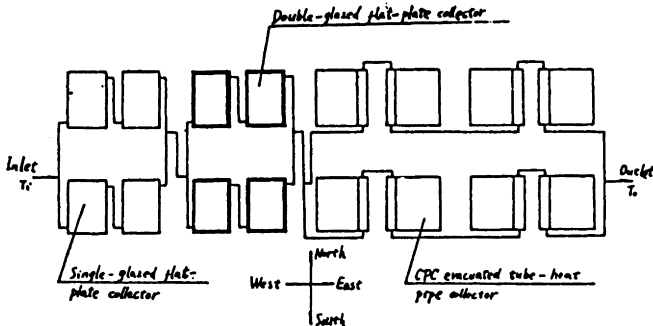 Double-glazed flat-plate collector
Inlet
Ti
Outlet
To
Single-glazed flat-
plate collector
North
West
East
South
CPC evacuated tube-heat
pipe collector